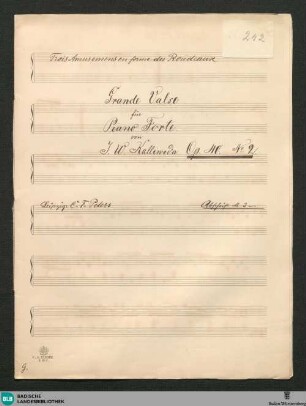 242
Trois Amusemens en forme des Rondeaux
Grande Valse
für
Piano Forte
von
J. W. Kalliwoda Op. 40. No 2
Leipzig C. F. Peters
9.
BLB BADISCHE
LANDESBIBLIOTHEK
Baden-Württemberg